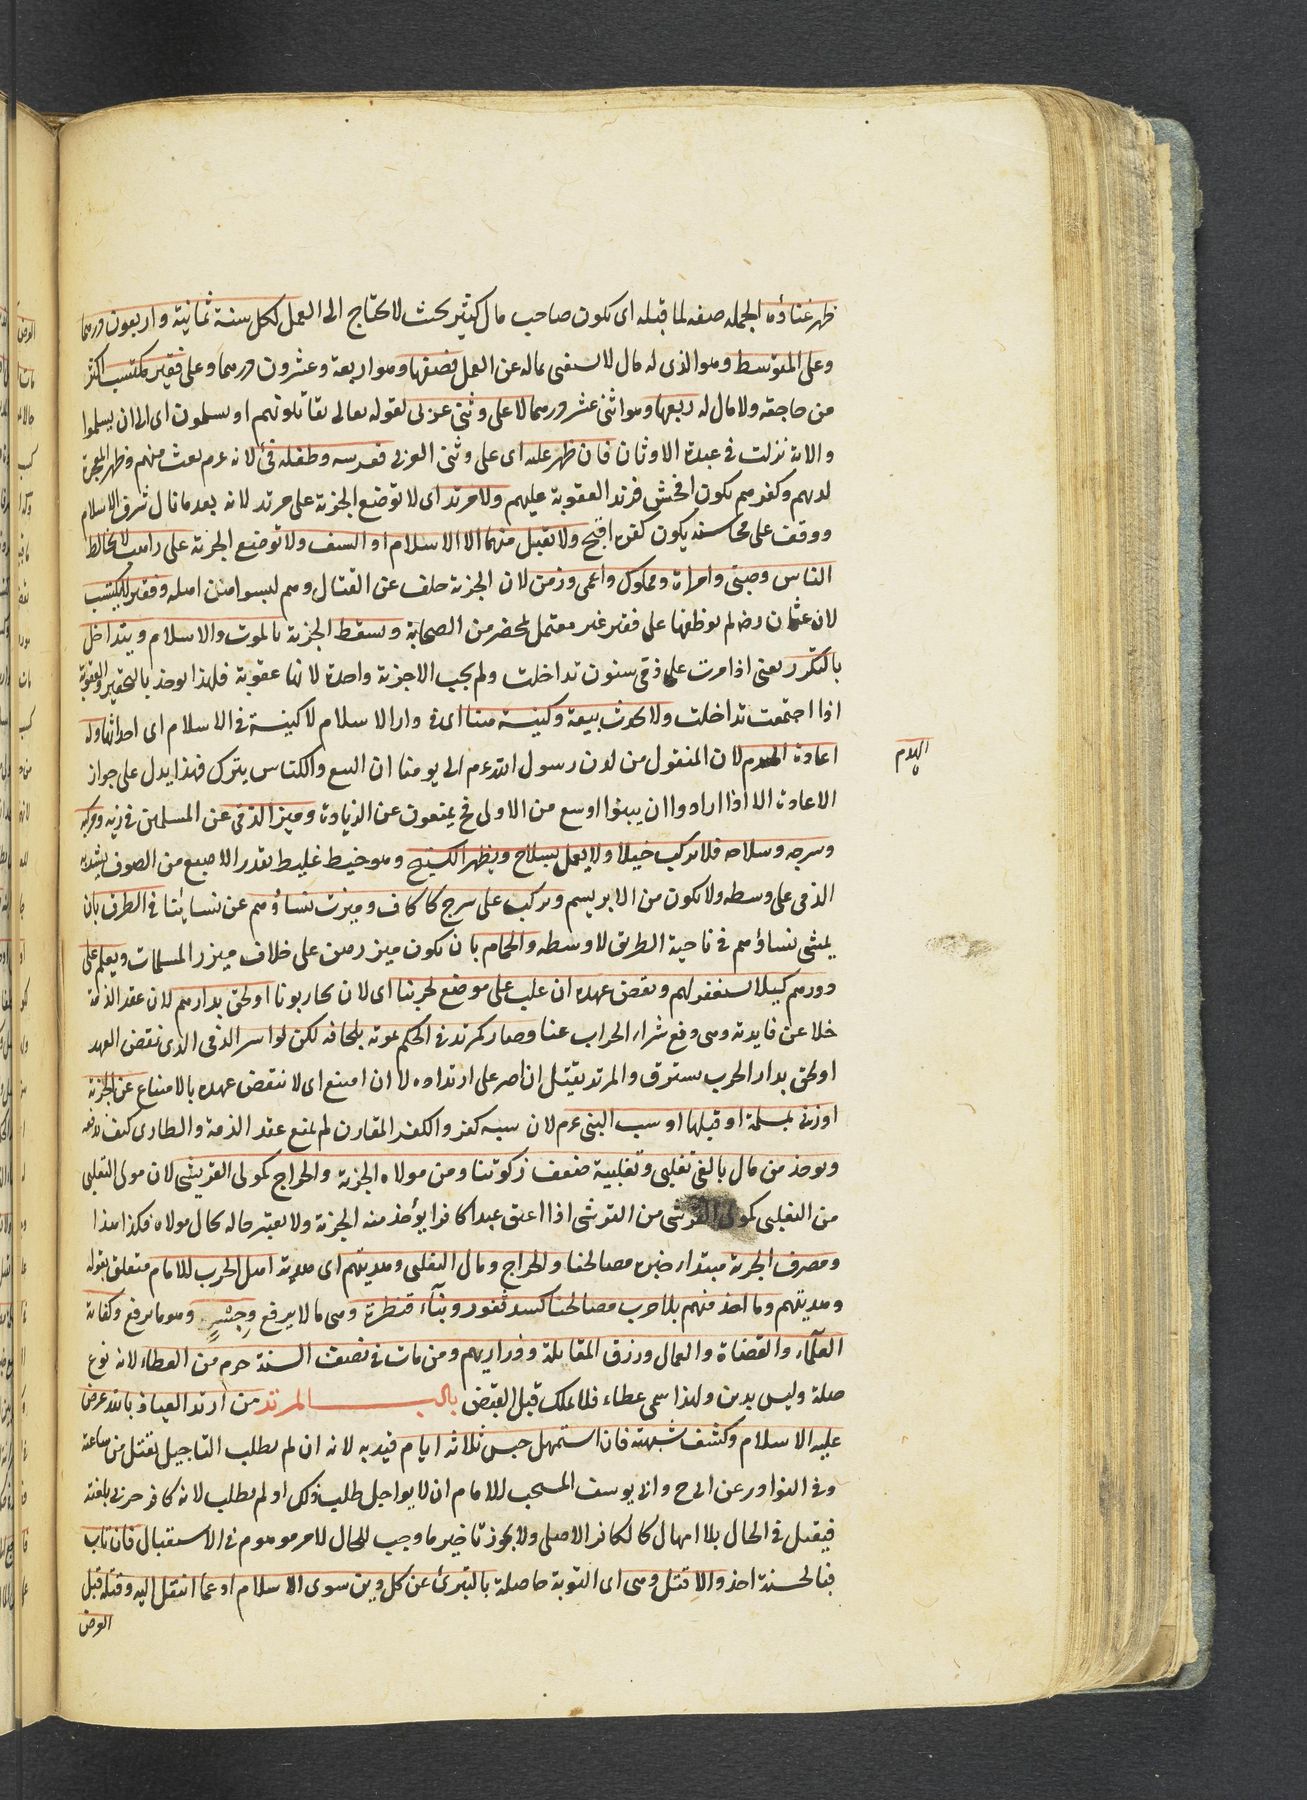 ظهر غناؤه الجملة صفة لما قبله اى يكون صاحب مال كثير بحيث لا يحتاج الى العمل لكل سنة ثمانية واربعون درهما
وعلى المتوسط وهو الذى له مال لا يستغنى بماله عن العمل نصفها وهو اربعة وعشرون درهما وعلى فقير مكتسب اكثر
من حاجته ولا مال له ربعها وهو اثنى عشر درهما لا على وثنى عربى لقوله تعالى تقاتلونهم او يسلمون اى الى ان يسلموا
والاية نزلت فى عبدة الاوثان فان ظهر عليه اى على وثنى العربى فعرسه وطفله فئ لانه عم بعث منهم وظهر المعجزة
لديهم وكفرهم يكون افحش فزيد العقوبة عليهم ولا مرتد اى لا توضع الجزية على مرتد لانه بعد ما نال شرف الاسلام
ووقف على محاسنه يكون كفره اقبح ولا يقبل منهما الا الاسلام او السيف ولا توضع الجزية على راهب لا يخالط
الناس وصبى وامراة ومملوك واعمى وزمن لان الجزية خلف عن القتال وهم ليسوا من اهله وفقير لا يكتسب
لان عثمان رضه لم يوظفها على فقير غير معتمل بمحضر من الصحابة ويسقط الجزية بالموت والاسلام ويتداخل
بالتكرر يعنى اذا مرت على ذمى سنون تداخلت ولم يجب الا جزية واحدة لانها عقوبة فلهذا يوخذ بالتحقير والعقوبة
اذا اجتمعت تداخلت ولا يحدث بيعة وكنيسة هنا اى فى دار الاسلام لا كنيسة فى الاسلام اى احداثها وله
اعادة الهدم لان المنقول من لدن رسول الله عم الى يومنا ان البيع والكنائس يترك فهذا يدل على جواز
الهدم
الاعادة الا اذا ارادوا ان يبنوا اوسع من الاولى فح يمنعون عن الزيادة وميز الذمى عن المسلمين فى زيه ومركبه
وسرجه وسلاحه فلا يركب خيلا ولا يعمل بسلاح ويظهر الكستيج وهو خيط غليظ بقدر الاصبع من الصوف يشده
الذمى على وسطه ولا يكون من الابريسم ويركب على سرج كاكاف وميزت نساؤهم عن نسائنا فى الطرق بان
يمشى نساؤهم فى ناحية الطريق لا وسطه والحمام بان يكون ميزرهن على خلاف ميزر المسلمات ويعلم على
دورهم كيلا يستغفر لهم ونقض عهده ان غلب على موضع لحربنا اى لان يحاربونا او لحق بدارهم لان عقد الذمة
خلا عن فايدة وهى دفع شراء الحراب عنا وصار كمرتد فى الحكم بموته بلحاقه لكن لو اسر الذمى الذى نقض العهد
او لحق بدار الحرب يسترق والمرتد يقتل ان اصر على ارتداده لا ان امتنع اى لا ينقض عهده بالامتناع عن الجزية
او زنى بمسلمة او قبلها او سب النبى عم لان سبه كفر والكفر المقارن لم يمنع عقد الذمة والطارى كيف يرفعه
ويوخذ من مال بالغى تغلبى وتغلبية ضعف زكوتنا ومن مولاه الجزية والخراج كمولى القريشى لان مولى التغلبى
من التغلبى كمولى القرشى من القرشى اذا اعتق عبدا كافرا يؤخذ منه الجزية ولا يعتبر حاله بحال مولاه فكذا هذا
ومصرف الجزية مبتداء خبره مصالحنا والخراج ومال التغلبى وهديتهم اى هدية اهل الحرب للامام متعلق بقوله
وهديتهم وما اخذ منهم بلا حرب مصالحنا كسد ثغور وبناء قنطرة وهى ما لا يرفع وجسر وهو ما يرفع وكفاية
العلماء والقضاة والعمال ورزق المقاتلة وذراريهم ومن مات فى نصف السنة حرم من العطاء لانه نوع
صلة وليس بدين ولهذا سمى عطاء فلا يملك قبل القبض باب المرتد من ارتد العياذ بالله عرض
عليه الاسلام وكشف شبهته فان استمهل حبس ثلاثة ايام قيد به لانه ان لم يطلب التاجيل يقتل من ساعته
وفى النوادر عن ابى ح وابى يوسف المستحب للامام ان لا يواجل طلب ذلك او لم يطلب لانه كافر حربى بلغته
فيقتل فى الحال بلا امهال كالكافر الاصلى ولا يجوز تاخير ما وجب للحال لامر موهوم فى الاستقبال فان تاب
فبالحسنة اخذ والا قتل وهى اى التوبة حاصلة بالتبرئ عن كل دين سوى الاسلام او عما انتقل اليه وقتله قبل
العرض